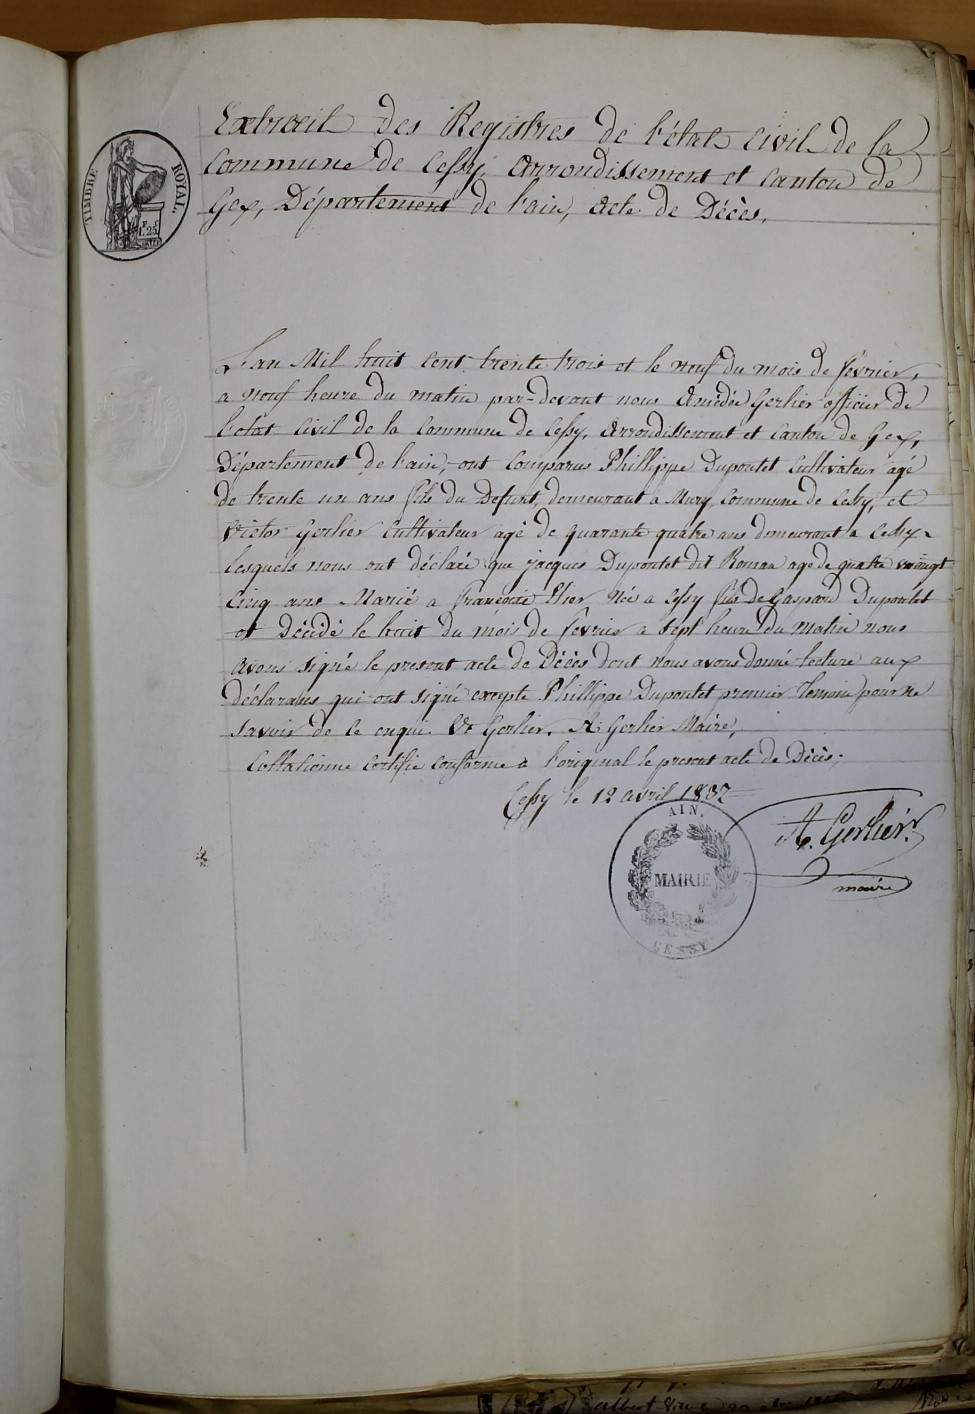 TIMBRE ROYAL.
Extrait des Registres de l'état Civil de la
Commune de Cessy, Arrondissement et Canton de
Gex, Département de l'ain, Acte de Décès.
L'an Mil huit Cent trente trois et le neuf du mois de février,
a neuf heure du matin par-devant nous Amedée Gerlier officier de
l'etat Civil de la Commune de Cessy, Arrondissement et Canton de Gex,
Département de l'ain, ont Comparus Phillippe Dupontet Cultivateur agé
de trente un ans fils du Defunt, demeurant a Mury Commune de Cessy, et
Victor Gerlier Cultivateur agé de quarante quatre ans demeurant a Cessy
lesquels nous ont déclaré que jacques Dupontet dit Roman age de quatre vingt
Cinq ans Marié a françoise Née a Cessy fils de Gaspard Dupontet
et Décédé le huit du mois de fevrier a sept heure du matin nous
avons signé le present acte de Décès dont nous avons donné lecture aux
déclarans qui ont signé excepte Phillippe Dupontet premier temoin pour ne
savoir de ce enquis. Vr Gerlier. A. Gerlier Maire,
Collationne certifie conforme a l'original le present acte de Décès;
Cessy le 12 avril 1837
A. Gerlier
maire
AIN.
MAIRIE
CESSY